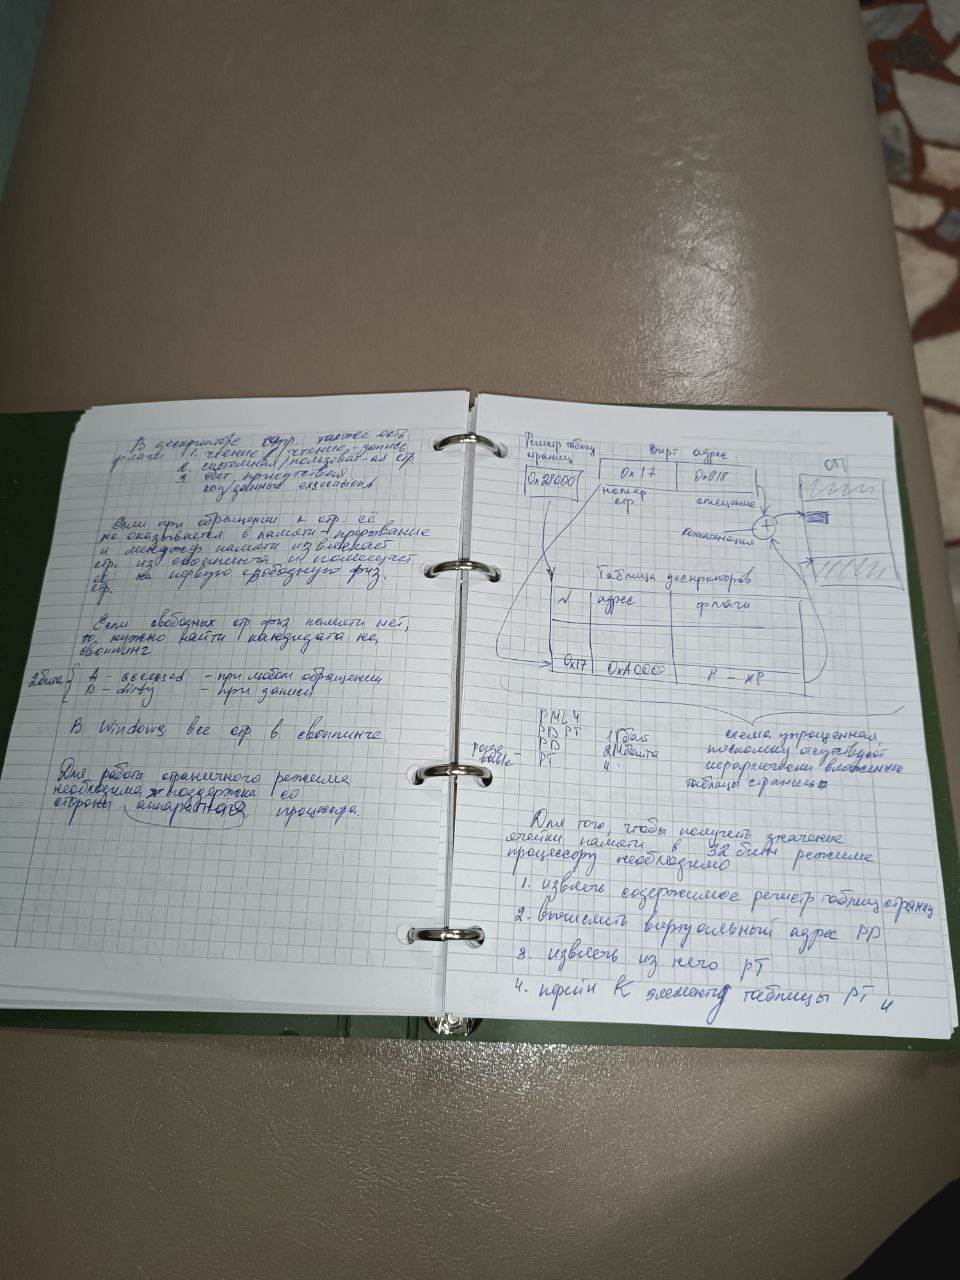 В дескрипторе стр. также есть
флаги 1. чтение / чтение-запись
2. системная/пользоват-ая стр.
3. бит присутствия
код/данные
Если при обращении к стр. её
не оказывается в памяти - прерывание
и менеджер памяти извлекает
стр. из своппинга и помещает
её на первую свободную физ.
стр.
Если свободных стр физ памяти нет,
то нужно найти кандидата на
своппинг
2 бита { A - accessed - при любом обращении
D - dirty - при записи
В Windows все стр в своппинге
Для работы страничного режима
необходима поддержка со
стороны аппаратного процессора.
Регистр таблиц
страниц
0x28000
Вирт адрес
0x17 0x018
номер
стр
смещение
конкатенация
+
ОП
Таблица дескрипторов
N адрес флаги
0x17 0xA000
PML4
PDPT 1Гбайт
PD 2Мбайта
page table - PT 4
схема упрощенная,
поскольку отсутствуют
иерархически вложенные
таблицы страниц
Для того, чтобы получить значение
ячейки памяти в 32 битн режиме
процессору необходимо
1. извлечь содержимое регистр таблиц страниц
2. Вычислить виртуальный адрес PD
3. извлечь из него PT
4. перейти к элементу таблицы PT и